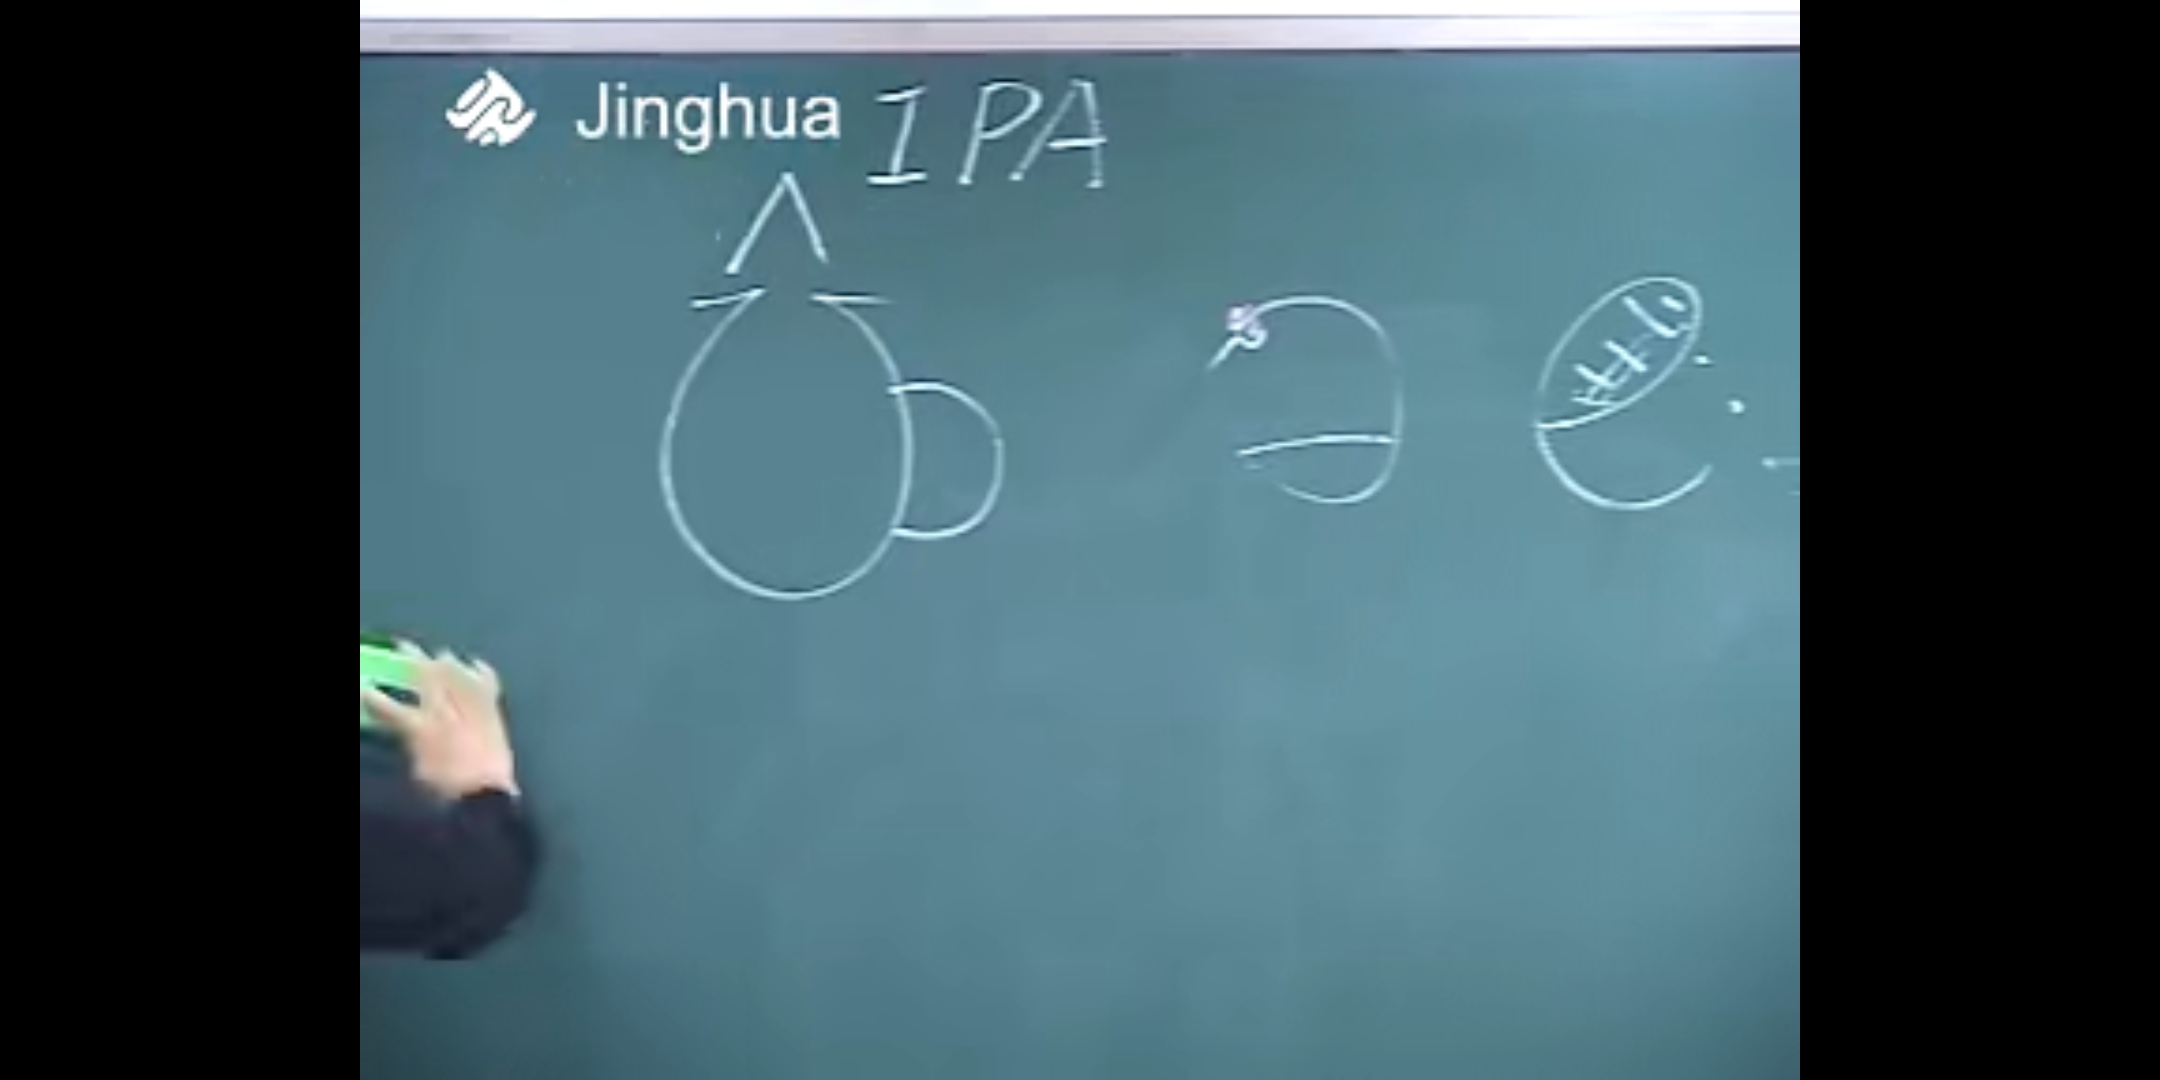 Jinghua
IPA
ʌ
ə e